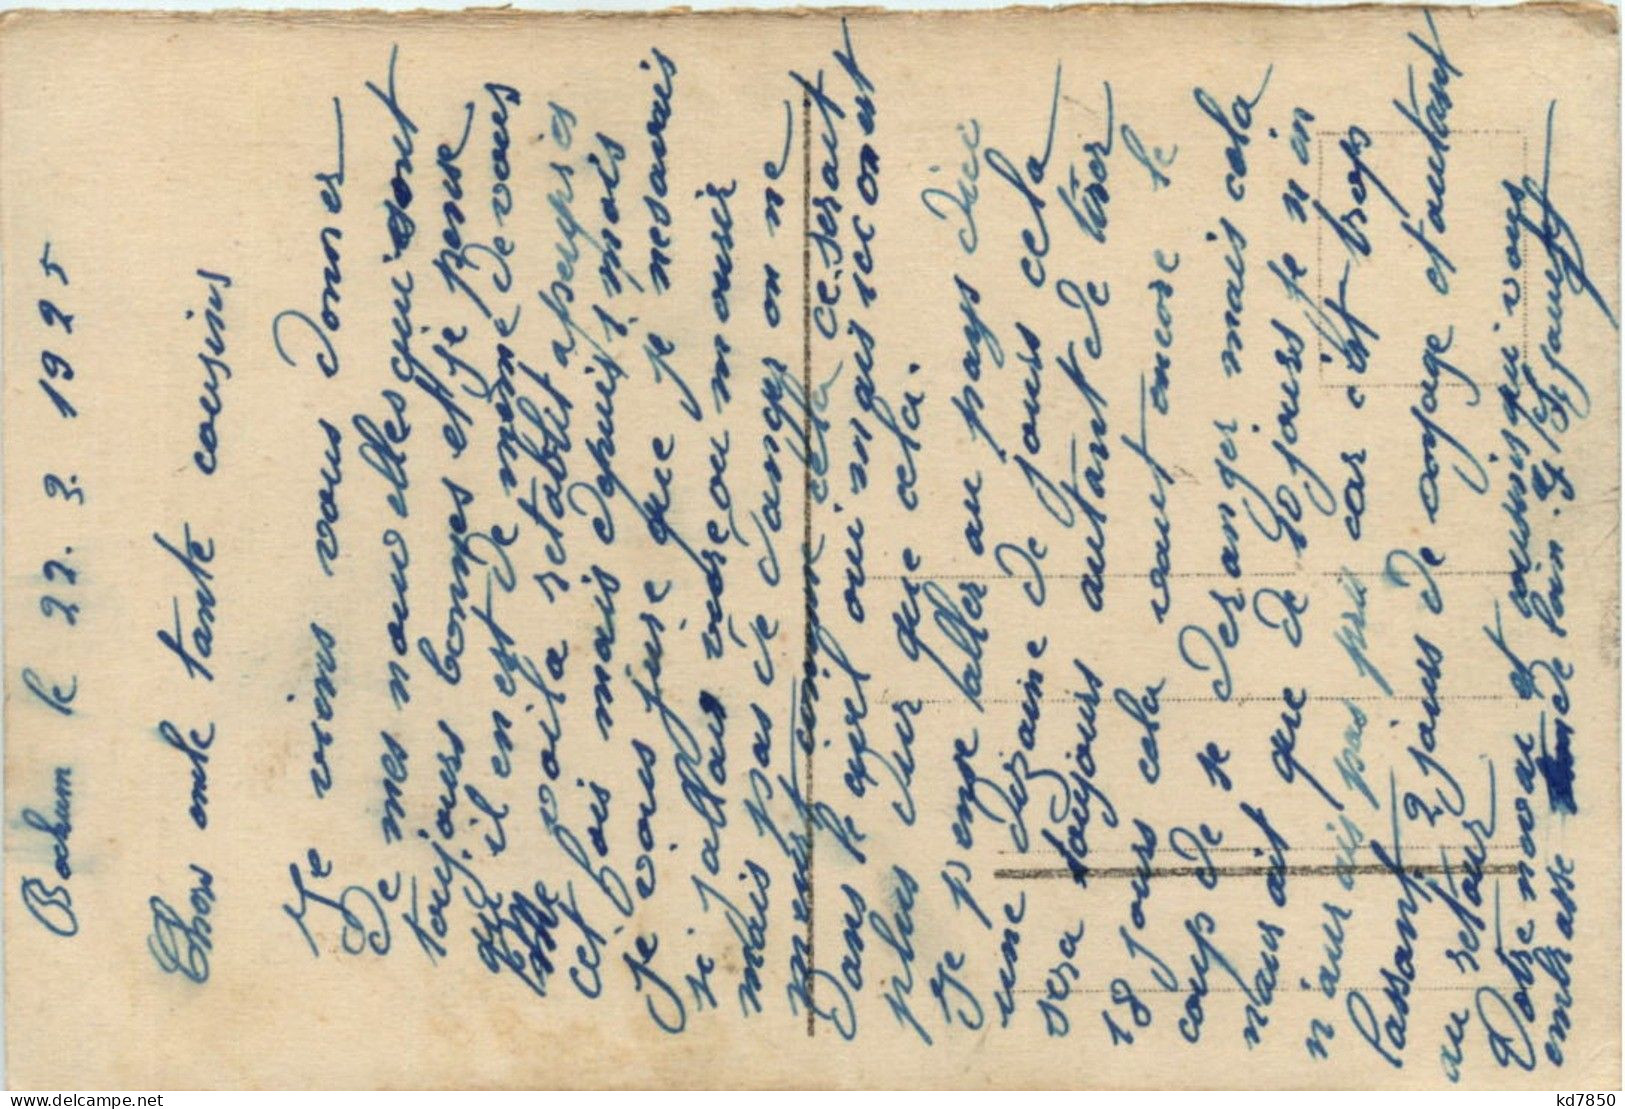 Bochum le 22. 3. 1925
Chers oncle tante cousins
Je viens vous donner
de mes nouvelles qui sont
toujours bonnes et je pense
qu'il en est de même de vous
Me voila retablit apeupres
cet fois mais depuis 1 mois
Je vous jure que je nesavais
si j allais vivre ou mourir
mais pas de danger on ne
meurt comme cela ce serait
dans le quel oui mais se
plus dur que cela.
Je pense aller au pays dici
une dizaine de jours cela
sera toujours autant de tirer
18 jours cela vaut encore le
coup de se deranger mais cela
n aurait que de 10 jours je n en
n aurais pas pris car c est trop
lassant, 2 jours de voyage et autant
au retour
Votre neveu et cousin qui vous
embrasse de loin.
kd7850